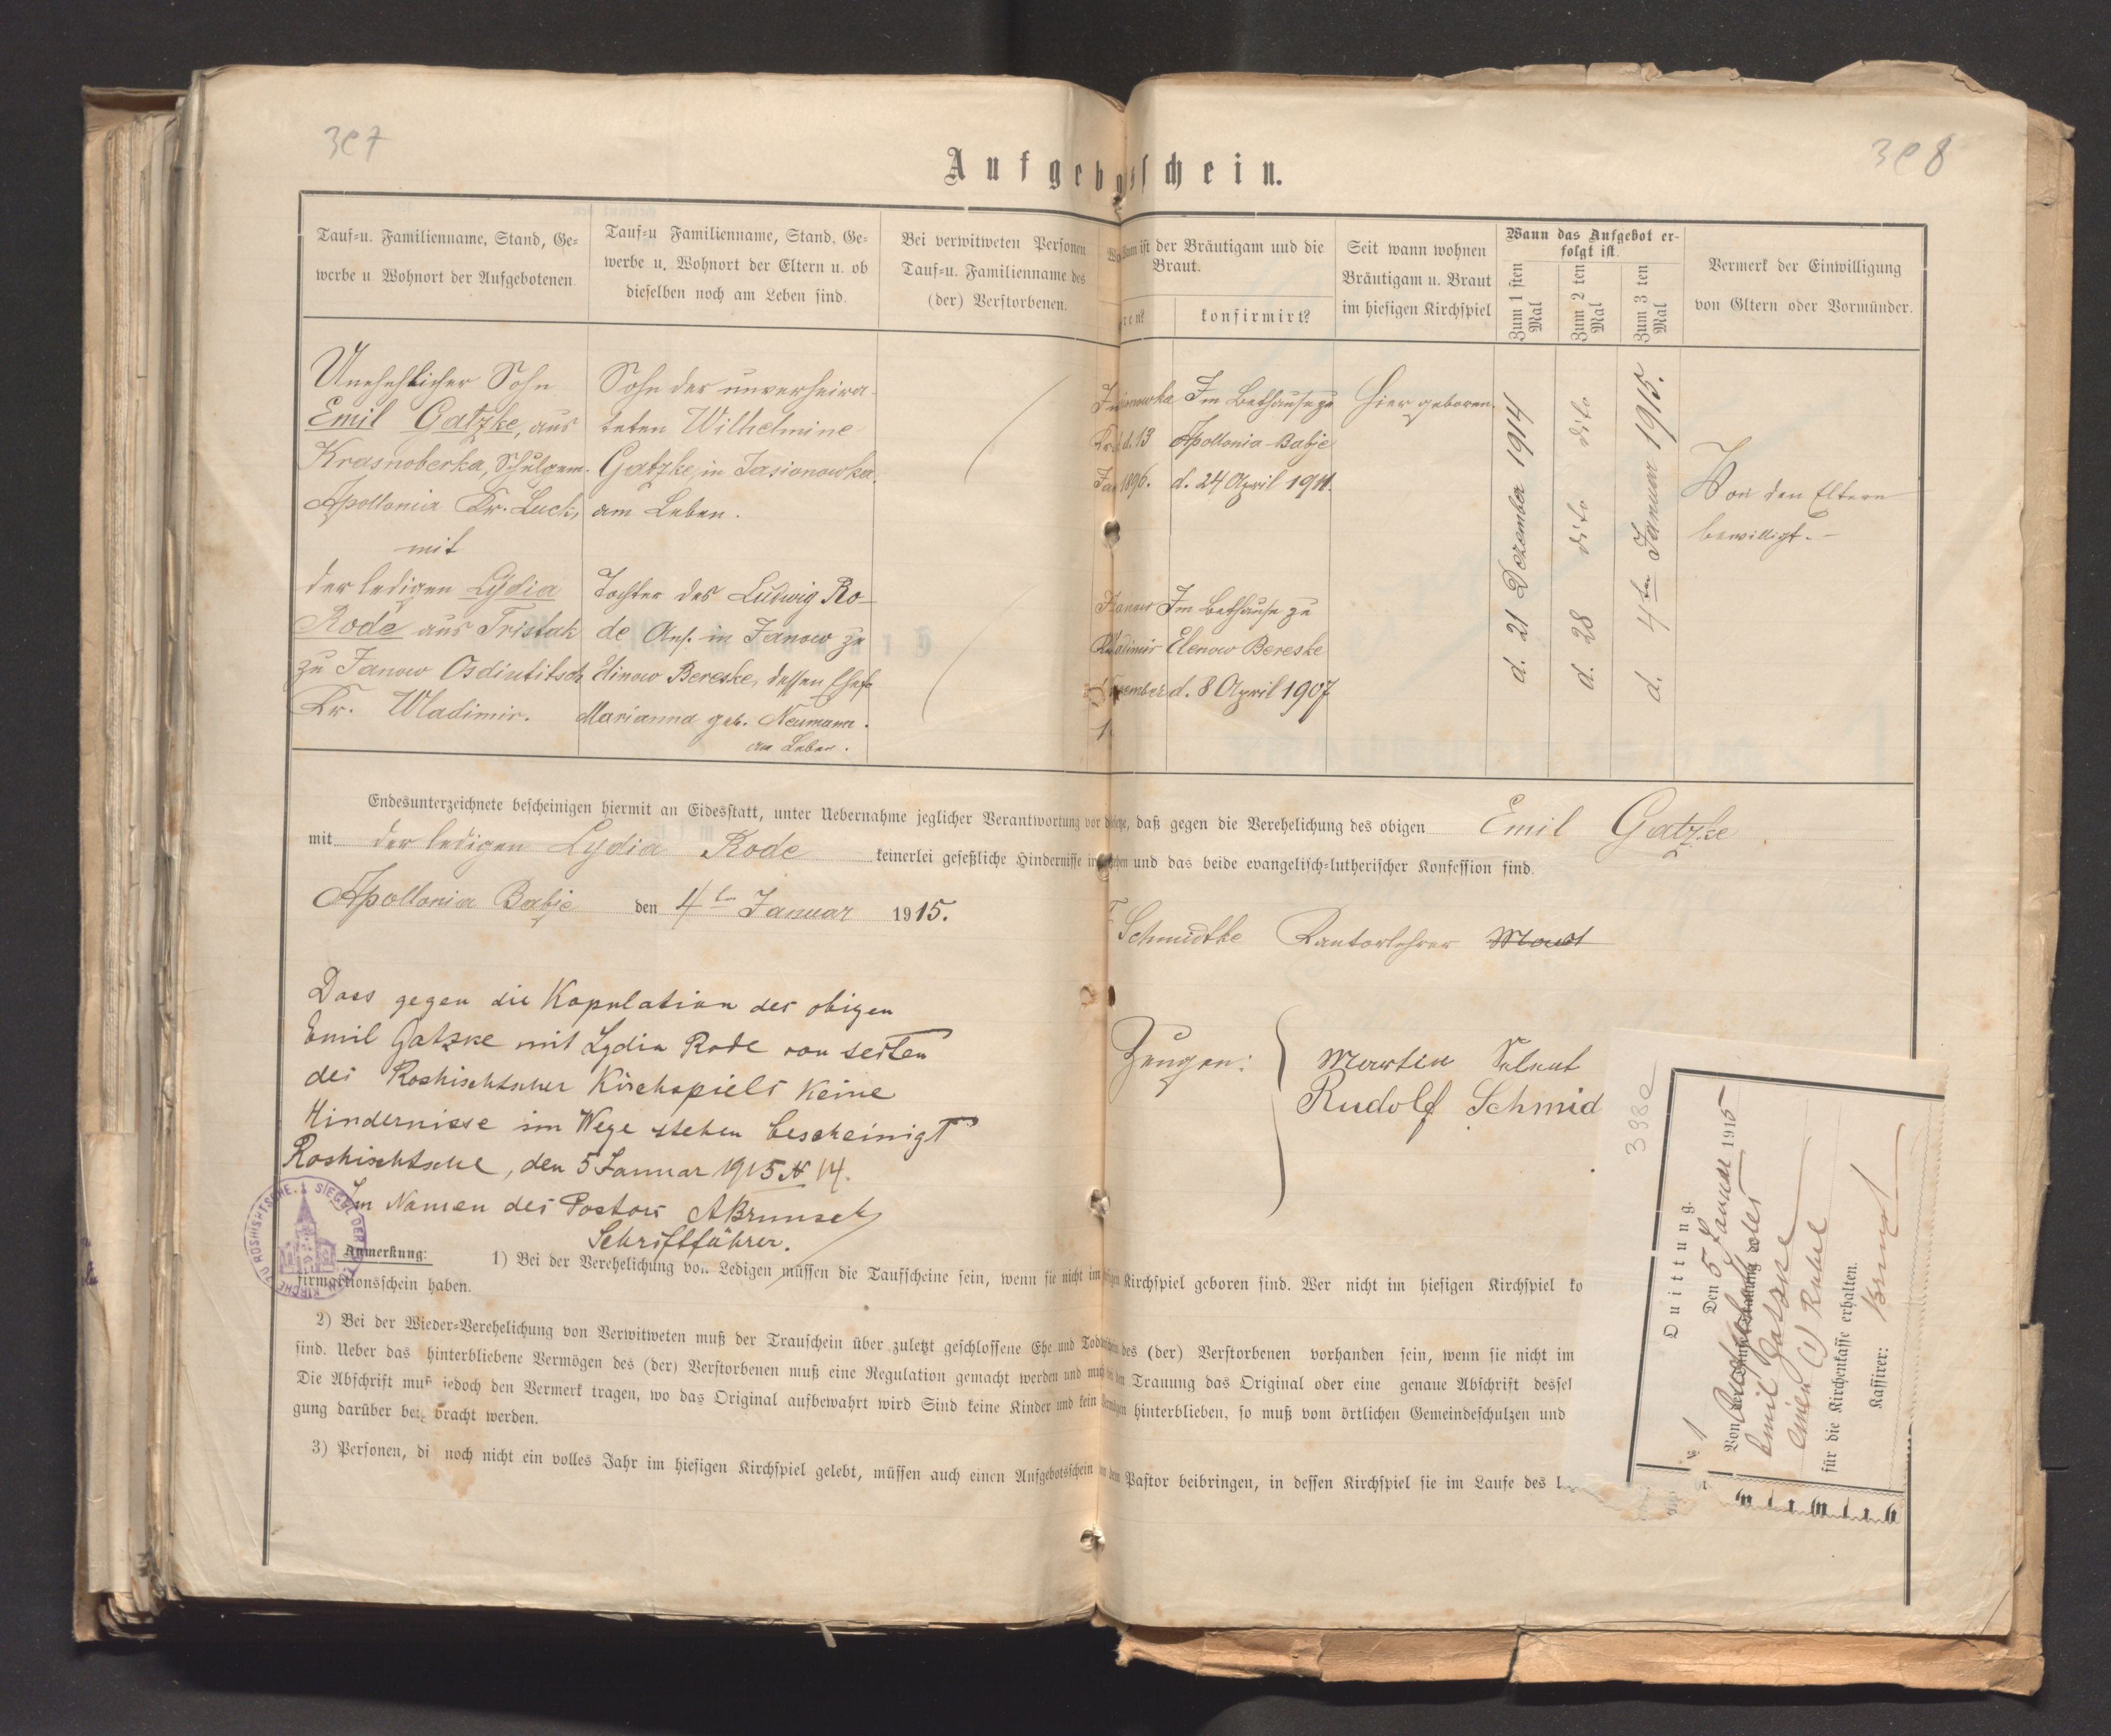 3e7
3e8
Aufgebotsschein.
Tauf=u. Familienname, Stand, Ge=
werbe u Wohnort der Aufgebotenen.
Tauf=u Familienname, Stand, Ge=
werbe u. Wohnort der Eltern u. ob
dieselben noch am Leben sind.
Bei verwitweten Personen
Tauf=u. Familienname des
(der) Verstorbenen.
ist der Bräutigam und die
Braut.
konfirmirt?
Seit wann wohnen
Bräutigam u. Braut
im hiesigen Kirchspiel
Wann das Aufgebot er-
folgt ist.
Zum 1 sten
Mal
Zum 2 ten
Mal
Zum 3 ten
Mal
Vermerk der Einwilligung
von Eltern oder Vormünder.
Unehehlicher Sohn
Emil Gatzke, aus
Krasnoberka, Schulgem.
Apollonia Kr. Luck,
mit
der ledigen Lydia
Rode aus Tristak
zu Janow Osdiutitsch
Kr. Wladimir.
Sohn der unverheira-
teten Wilhelmine
Gatzke, in Jasionowka,
am Leben.
Tochter des Ludwig Ro-
de Ans. in Janow zu
Elinow Bereske, dessen Ehefr
Marianna geb. Neumann.
am Leben.
d. 13
1896.
Im Bethause zu
Apollonia-Babje
d. 24 April 1911.
Im Bethause zu
Elenow Bereske
d. 8 April 1907
Hier geboren.
d. 21 Dezember 1914
d. 28 dito dito
d. 4ten Januar 1915.
Von den Eltern
bewilligt. –
Endesunterzeichnete bescheinigen hiermit an Eidesstatt, unter Uebernahme jeglicher Verantwortung vor daß gegen die Verehelichung des obigen Emil Gatzke
mit der ledigen Lydia Rode keinerlei gesetzliche Hindernisse und das beide evangelisch=lutherischer Konfession sind.
Apollonia Babje den 4ten Januar 1915.
Schmidtke Kantorlehrer
Dass gegen die Kopulation des obigen
Emil Gatzke mit Lydia Rode von seiten
des Roshischtscher Kirchspiels Keine
Hindernisse im Wege stehen bescheinigt
Roshischtsche, den 5 Januar 1915 N 14.
Im Namen des Pastors ABrunsch
Schriftführer.
Zeugen:
Martin
Rudolf Schmid
Anmerkung: 1) Bei der Verehelichung von Ledigen müssen die Taufscheine sein, wenn sie nicht im Kirchspiel geboren sind. Wer nicht im hiesigen Kirchspiel ko
firmationsschein haben.
2) Bei der Wieder=Verehelichung von Verwitweten muß der Trauschein über zuletzt geschlossene Ehe und des (der) Verstorbenen vorhanden sein, wenn sie nicht im
sind. Ueber das hinterbliebene Vermögen des (der) Verstorbenen muß eine Regulation gemacht werden und Trauung das Original oder eine genaue Abschrift dessel
Die Abschrift muß jedoch den Vermerk tragen, wo das Original aufbewahrt wird Sind keine Kinder und kein hinterblieben, so muß vom örtlichen Gemeindeschulzen und
gung darüber beigebracht werden.
3) Personen, di noch nicht ein volles Jahr im hiesigen Kirchspiel gelebt, müssen auch einen Aufgebotsschein Pastor beibringen, in dessen Kirchspiel sie im Laufe des
Quittung.
№ 1 Den 5 Januar 1915
Von
Emil Gatzke
einen (1) Rubel
für die Kirchenkasse erhalten.
Kassirer: